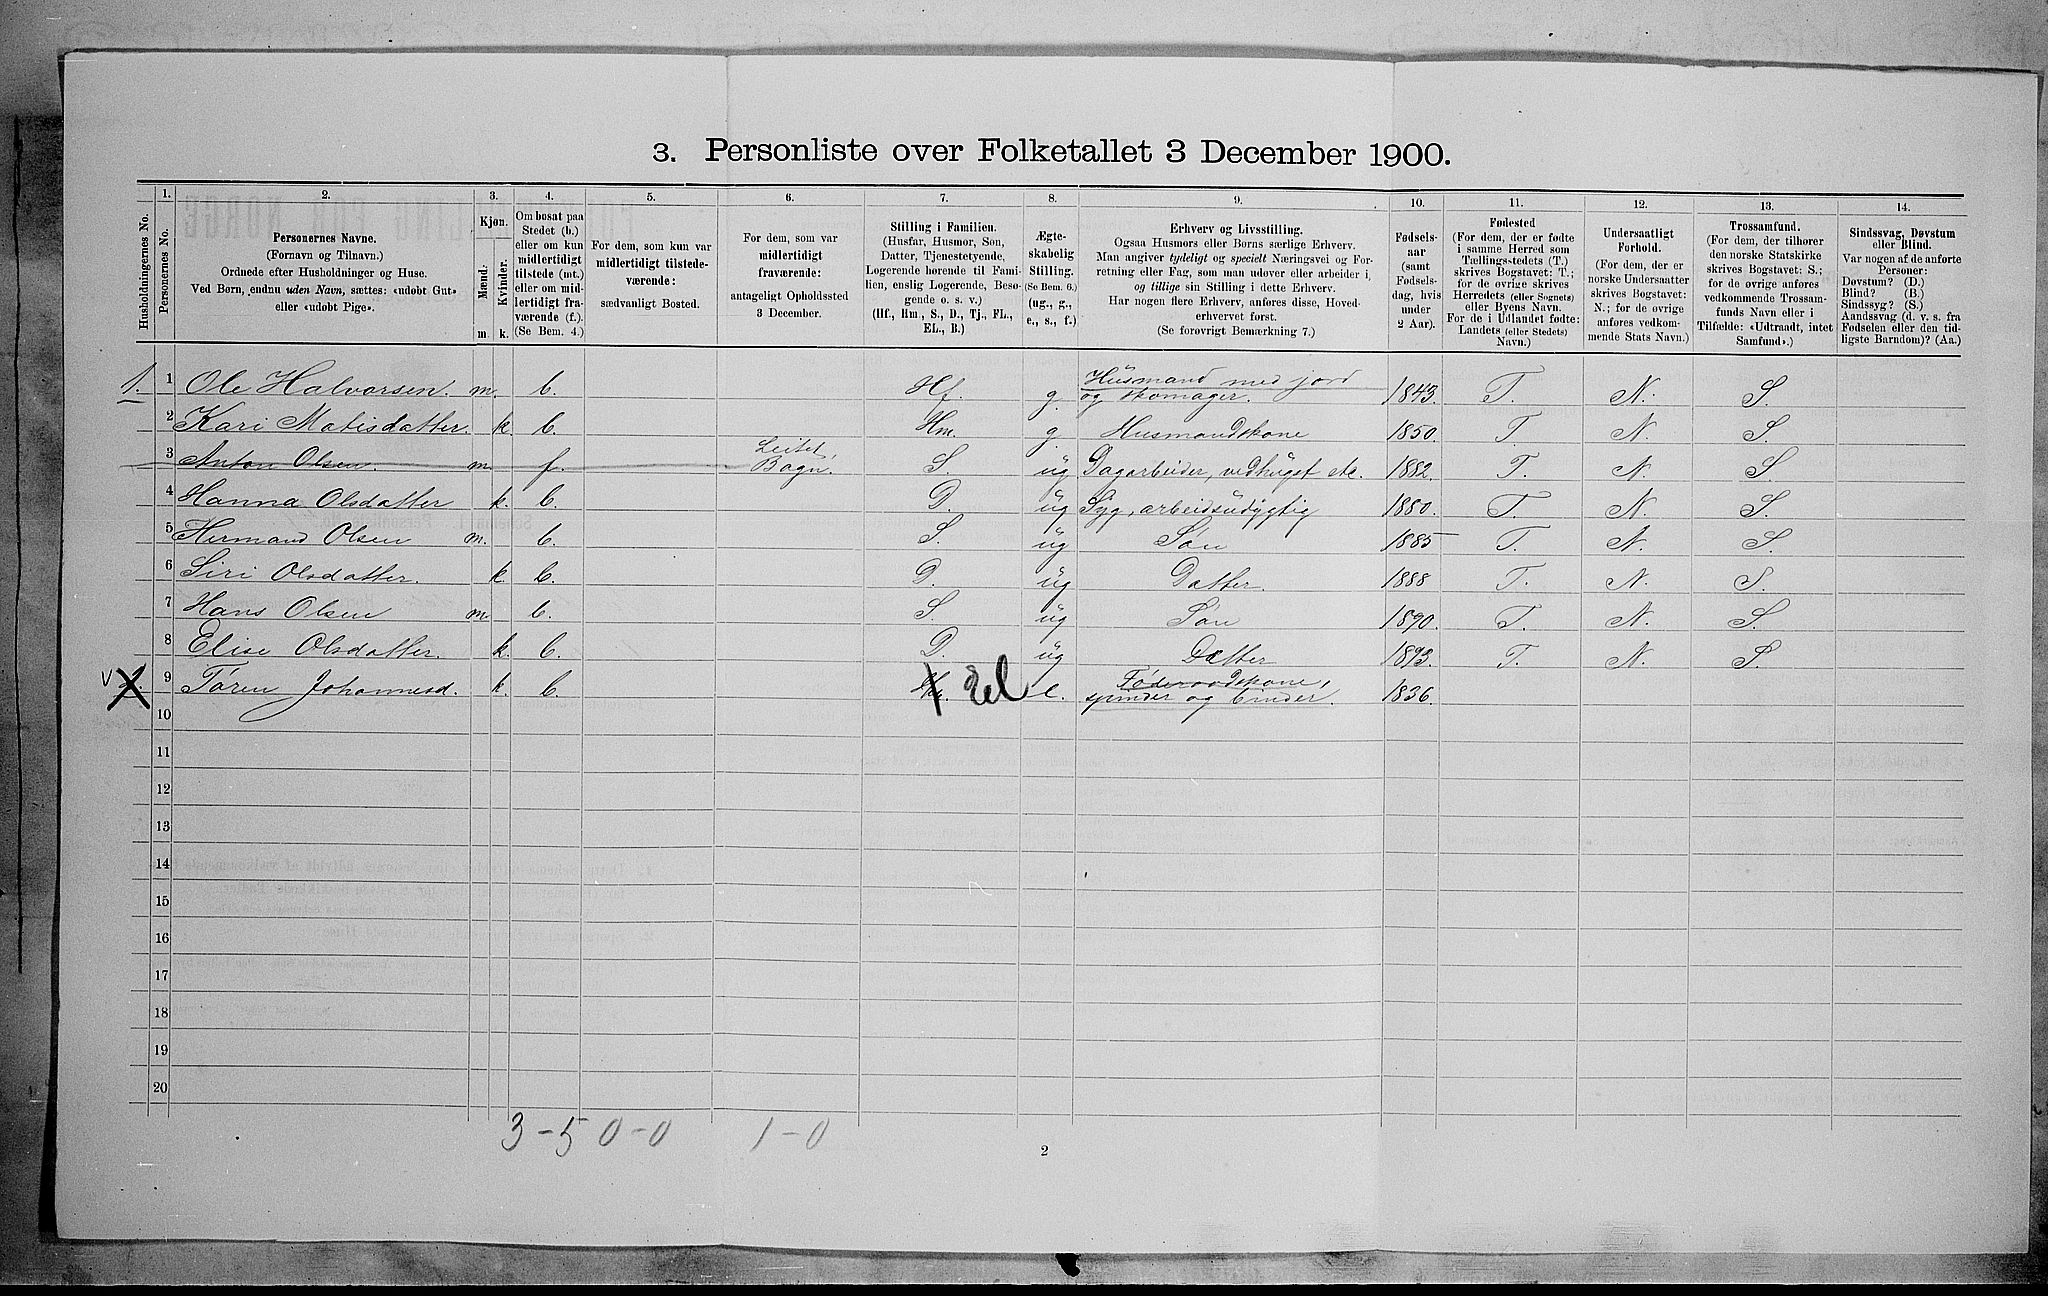 3. Personliste over Folketallet 3 December 1900.
1. 2. 3. 4. 5. 6. 7. 8. 9. 10. 11. 12. 13. 14.
Husholdningernes No.
Personernes No.
Personernes Navne.
(Fornavn og Tilnavn.)
Ordnede efter Husholdninger og Huse.
Ved Børn, endnu uden Navn, sættes: «udøbt Gut»
eller «udøbt Pige».
Kjøn.
Mænd.
Kvinder.
m. k.
Om bosat paa
Stedet (b.)
eller om kun
midlertidigt
tilstede (mt.)
eller om mid-
lertidigt fra-
værende (f.).
(Se Bem. 4.)
For dem, som kun var
midlertidigt tilstede-
værende:
sædvanligt Bosted.
For dem, som var
midlertidigt
fraværende:
antageligt Opholdssted
3 December.
Stilling i Familien.
(Husfar, Husmor, Søn,
Datter, Tjenestetyende,
Logerende hørende til Fami-
lien, enslig Logerende, Besø-
gende o. s. v.)
(Hf., Hm., S., D., Tj., FL.,
EL., B.)
Ægte-
skabelig
Stilling.
(Se Bem. 6.)
(ug., g.,
e., s., f.)
Erhverv og Livsstilling.
Ogsaa Husmors eller Børns særlige Erhverv.
Man angiver tydeligt og specielt Næringsvei og For-
retning eller Fag, som man udøver eller arbeider i,
og tillige sin Stilling i dette Erhverv.
Har nogen flere Erhverv, anføres disse, Hoved-
erhvervet først.
(Se forøvrigt Bemærkning 7.)
Fødsels-
aar
(samt
Fødsels-
dag, hvis
under
2 Aar).
Fødested
(For dem, der er fødte
i samme Herred som
Tællings-stedets (T.)
skrives Bogstavet: T.;
for de øvrige skrives
Herredets (eller Sognets)
eller Byens Navn.
For de i Udlandet fødte:
Landets (eller Stedets)
Navn.)
Undersaatligt
Forhold.
(For dem, der er
norske Undersaatter
skrives Bogstavet:
N.; for de øvrige
anføres vedkom-
mende Stats Navn.)
Trossamfund.
(For dem, der tilhører
den norske Statskirke
skrives Bogstavet: S.;
for de øvrige anføres
vedkommende Trossam-
funds Navn eller i
Tilfælde: «Udtraadt, intet
Samfund».)
Sindssvag, Døvstum
eller Blind.
Var nogen af de anførte
Personer:
Døvstum? (D.)
Blind? (B.)
Sindssyg? (S.)
Aandssvag (d. v. s. fra
Fødselen eller den tid-
ligste Barndom)? (Aa.)
1. 1 Ole Halvorsen. m. b. Hf. g. Husmand med jord og skomager. 1843. T. N. S.
2 Kari Matisdatter. k. b. Hm. g Husmandskone 1850. T. N. S.
3 Anton Olsen. m. f. Leitet, Bagn. S. ug Dagarbeider, vedhuget etc. 1882. T. N. S.
4 Hanna Olsdatter k b. D. ug Syg, arbeidsudygtig 1880. T. N. S.
5 Hermand Olsen m. b. S. ug Søn 1885 T. N. S.
6 Siri Olsdatter. k b. D. ug Datter. 1888 T. N. S.
7 Hans Olsen m. b. S. ug Søn 1890. T. N. S.
8 Elise Olsdatter. k. b. D. ug Datter 1893. T. N. S.
9 Tøren Johannesd. k. b. El e. Føderaadskone, spinder og binder. 1836.
10
11
12
13
14
15
16
17
18
19
20
3-5 0-0 1-0
2